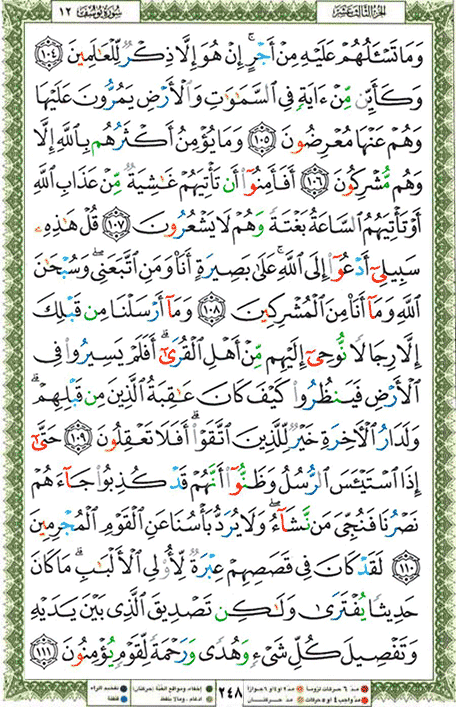 الجزء الثالث عشر سورة يوسف ١٢
وَمَا تَسْـَٔلُهُمْ عَلَيْهِ مِنْ أَجْرٍ ۚ إِنْ هُوَ إِلَّا ذِكْرٌ لِّلْعَٰلَمِينَ ١٠٤
وَكَأَيِّن مِّنْ ءَايَةٍ فِى ٱلسَّمَٰوَٰتِ وَٱلْأَرْضِ يَمُرُّونَ عَلَيْهَا
وَهُمْ عَنْهَا مُعْرِضُونَ ١٠٥ وَمَا يُؤْمِنُ أَكْثَرُهُم بِٱللَّهِ إِلَّا
وَهُم مُّشْرِكُونَ ١٠٦ أَفَأَمِنُوٓا۟ أَن تَأْتِيَهُمْ غَٰشِيَةٌ مِّنْ عَذَابِ ٱللَّهِ
أَوْ تَأْتِيَهُمُ ٱلسَّاعَةُ بَغْتَةً وَهُمْ لَا يَشْعُرُونَ ١٠٧ قُلْ هَٰذِهِۦ
سَبِيلِىٓ أَدْعُوٓا۟ إِلَى ٱللَّهِ ۚ عَلَىٰ بَصِيرَةٍ أَنَا۠ وَمَنِ ٱتَّبَعَنِى ۖ وَسُبْحَٰنَ
ٱللَّهِ وَمَآ أَنَا۠ مِنَ ٱلْمُشْرِكِينَ ١٠٨ وَمَآ أَرْسَلْنَا مِن قَبْلِكَ
إِلَّا رِجَالًا نُّوحِىٓ إِلَيْهِم مِّنْ أَهْلِ ٱلْقُرَىٰٓ ۗ أَفَلَمْ يَسِيرُوا۟ فِى
ٱلْأَرْضِ فَيَنظُرُوا۟ كَيْفَ كَانَ عَٰقِبَةُ ٱلَّذِينَ مِن قَبْلِهِمْ ۗ
وَلَدَارُ ٱلْءَاخِرَةِ خَيْرٌ لِّلَّذِينَ ٱتَّقَوْا۟ ۗ أَفَلَا تَعْقِلُونَ ١٠٩ حَتَّىٰٓ
إِذَا ٱسْتَيْـَٔسَ ٱلرُّسُلُ وَظَنُّوٓا۟ أَنَّهُمْ قَدْ كُذِبُوا۟ جَآءَهُمْ
نَصْرُنَا فَنُجِّىَ مَن نَّشَآءُ ۖ وَلَا يُرَدُّ بَأْسُنَا عَنِ ٱلْقَوْمِ ٱلْمُجْرِمِينَ
١١٠ لَقَدْ كَانَ فِى قَصَصِهِمْ عِبْرَةٌ لِّأُو۟لِى ٱلْأَلْبَٰبِ ۗ مَا كَانَ
حَدِيثًا يُفْتَرَىٰ وَلَٰكِن تَصْدِيقَ ٱلَّذِى بَيْنَ يَدَيْهِ
وَتَفْصِيلَ كُلِّ شَىْءٍ وَهُدًى وَرَحْمَةً لِّقَوْمٍ يُؤْمِنُونَ ١١١
مد ٦ حركات لزوماً مد ٢ او ٤ او ٦ جوازاً ٢٤٨ إخفاء، ومواقع الغنّة (حركتان) تفخيم الراء
مد واجب ٤ او ٥ حركات مد حركتان ادغام، وما لا يلفظ قلقلة